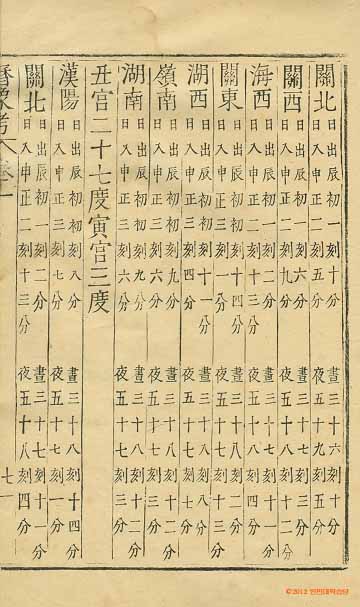 關北 日出辰初一刻十分 晝三十六刻十分
日入申正二刻五分 夜五十九刻五分
關西 日出辰初一刻六分 晝三十七刻三分
日入申正二刻九分 夜五十八刻十二分
海西 日出辰初一刻二分 晝三十七刻十一分
日入申正二刻十三分 夜五十八刻四分
關東 日出辰初初刻十四分 晝三十八刻二分
日入申正三刻一分 夜五十七刻十三分
湖西 日出辰初初刻十一分 晝三十八刻八分
日入申正三刻四分 夜五十七刻七分
嶺南 日出辰初初刻九分 晝三十八刻十二分
日入申正三刻六分 夜五十七刻三分
湖南 日出辰初初刻九分 晝三十八刻十二分
日入申正三刻六分 夜五十七刻三分
丑宮二十七度寅宮三度
漢陽 日出辰初初刻八分 晝三十八刻十四分
日入申正三刻七分 夜五十七刻一分
關北 日出辰初一刻二分 晝三十七刻十一分
日入申正二刻十三分 夜五十八刻四分